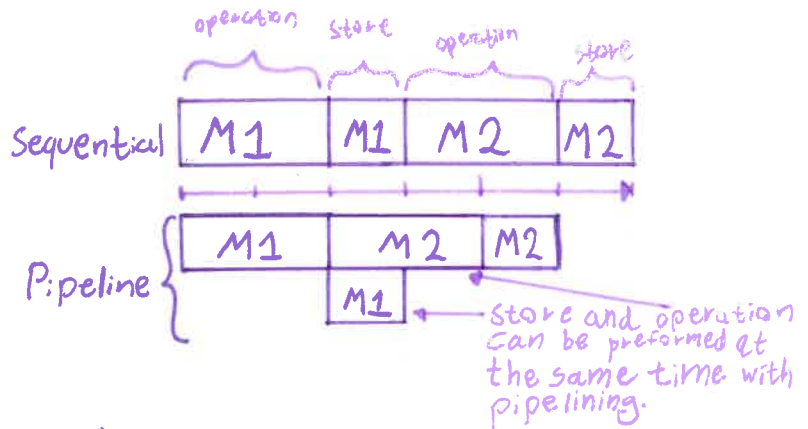 operation store operation store
Sequential M1 M1 M2 M2
Pipeline M1 M2 M2
M1
Store and operation
Can be preformed at
the same time with
pipelining.